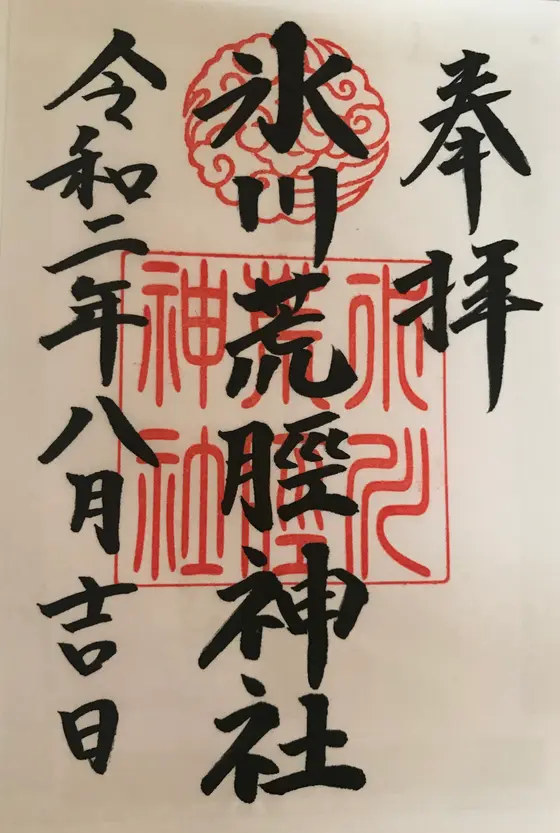 奉拝
氷川荒脛神社
令和二年八月吉日
氷川
荒脛
神社